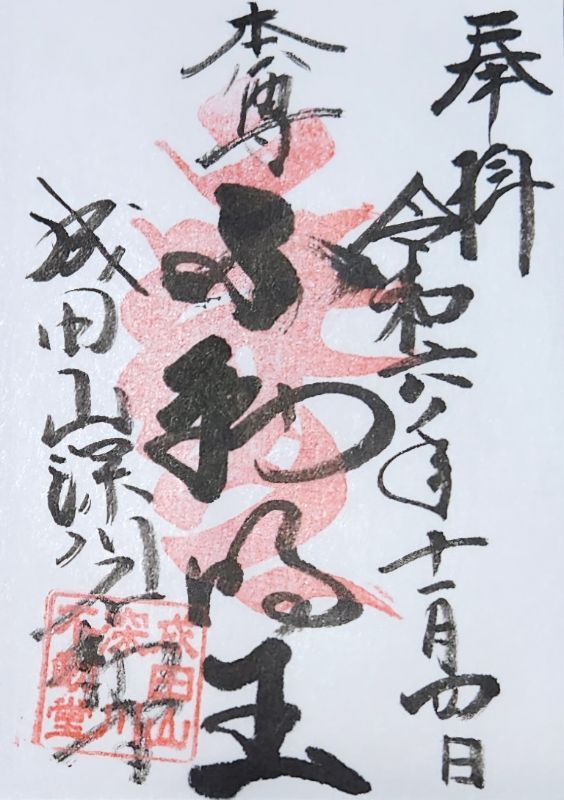 奉拝
令和六年十一月四日
本尊
不動明王
成田山深川不動堂
成田山
深川
不動堂